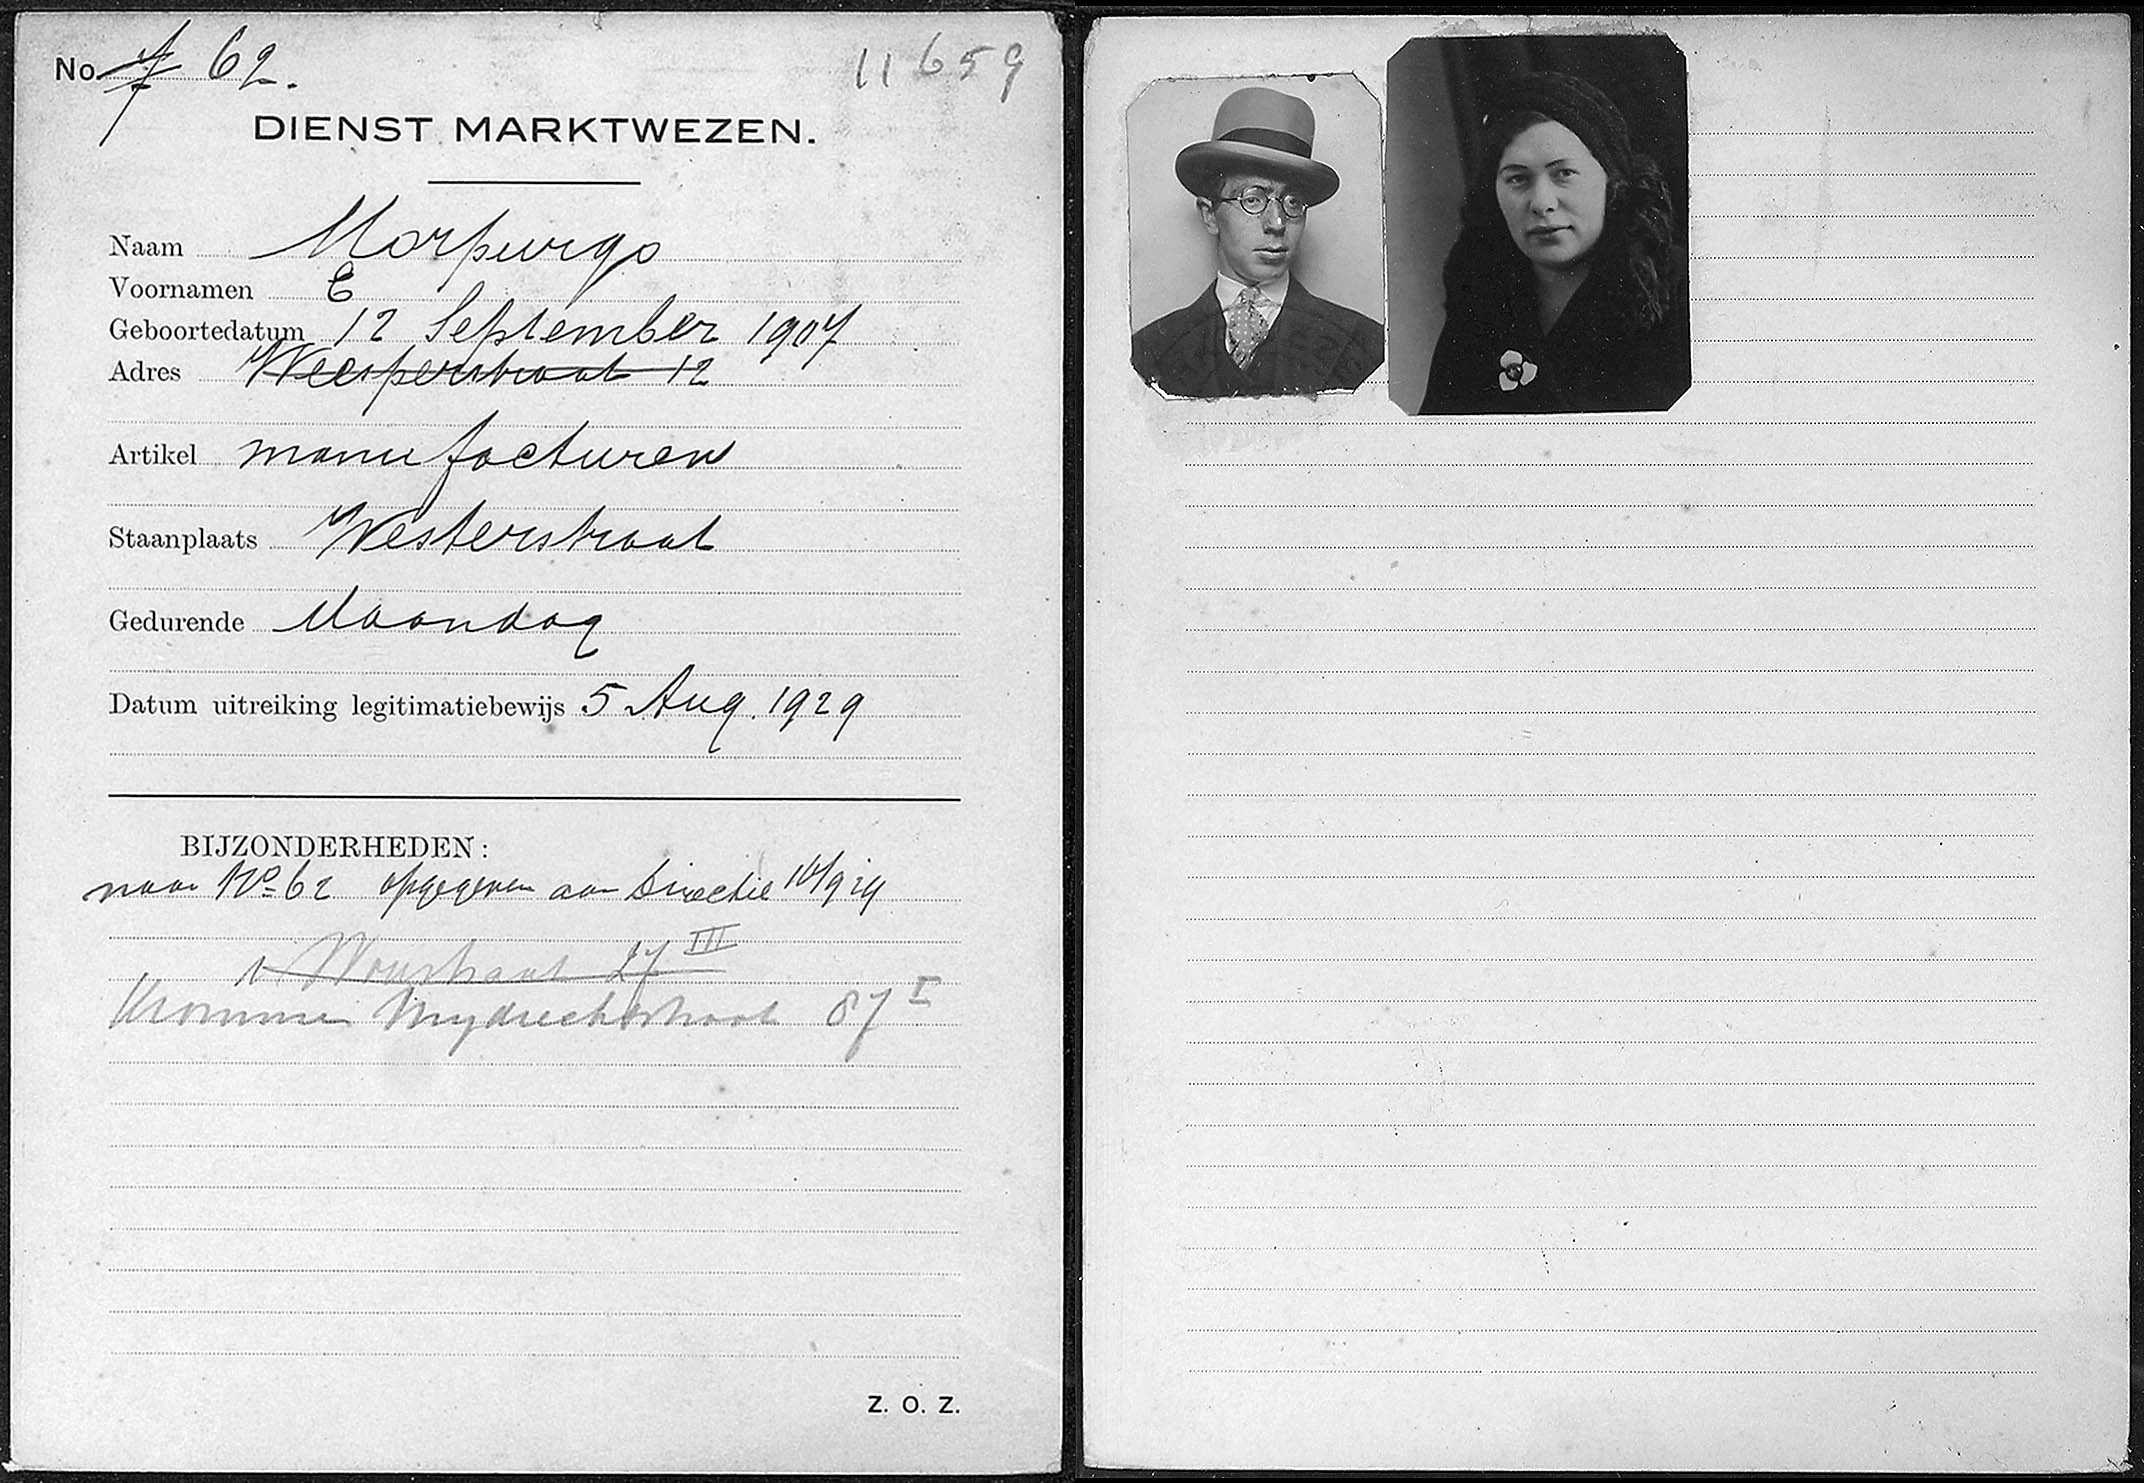 No. 7 62.
11659
DIENST MARKTWEZEN.
Naam Morpurgo
Voornamen E
Geboortedatum 12 September 1907
Adres Weesperstraat 12
Artikel manufacturen
Staanplaats Westerstraat
Gedurende Maandag
Datum uitreiking legitimatiebewijs 5 Aug. 1929
BIJZONDERHEDEN:
naar No 62 opgegeven aan Directie 10/9 29
27 III
Kromme Mydrechtstraat 87 I
Z. O. Z.